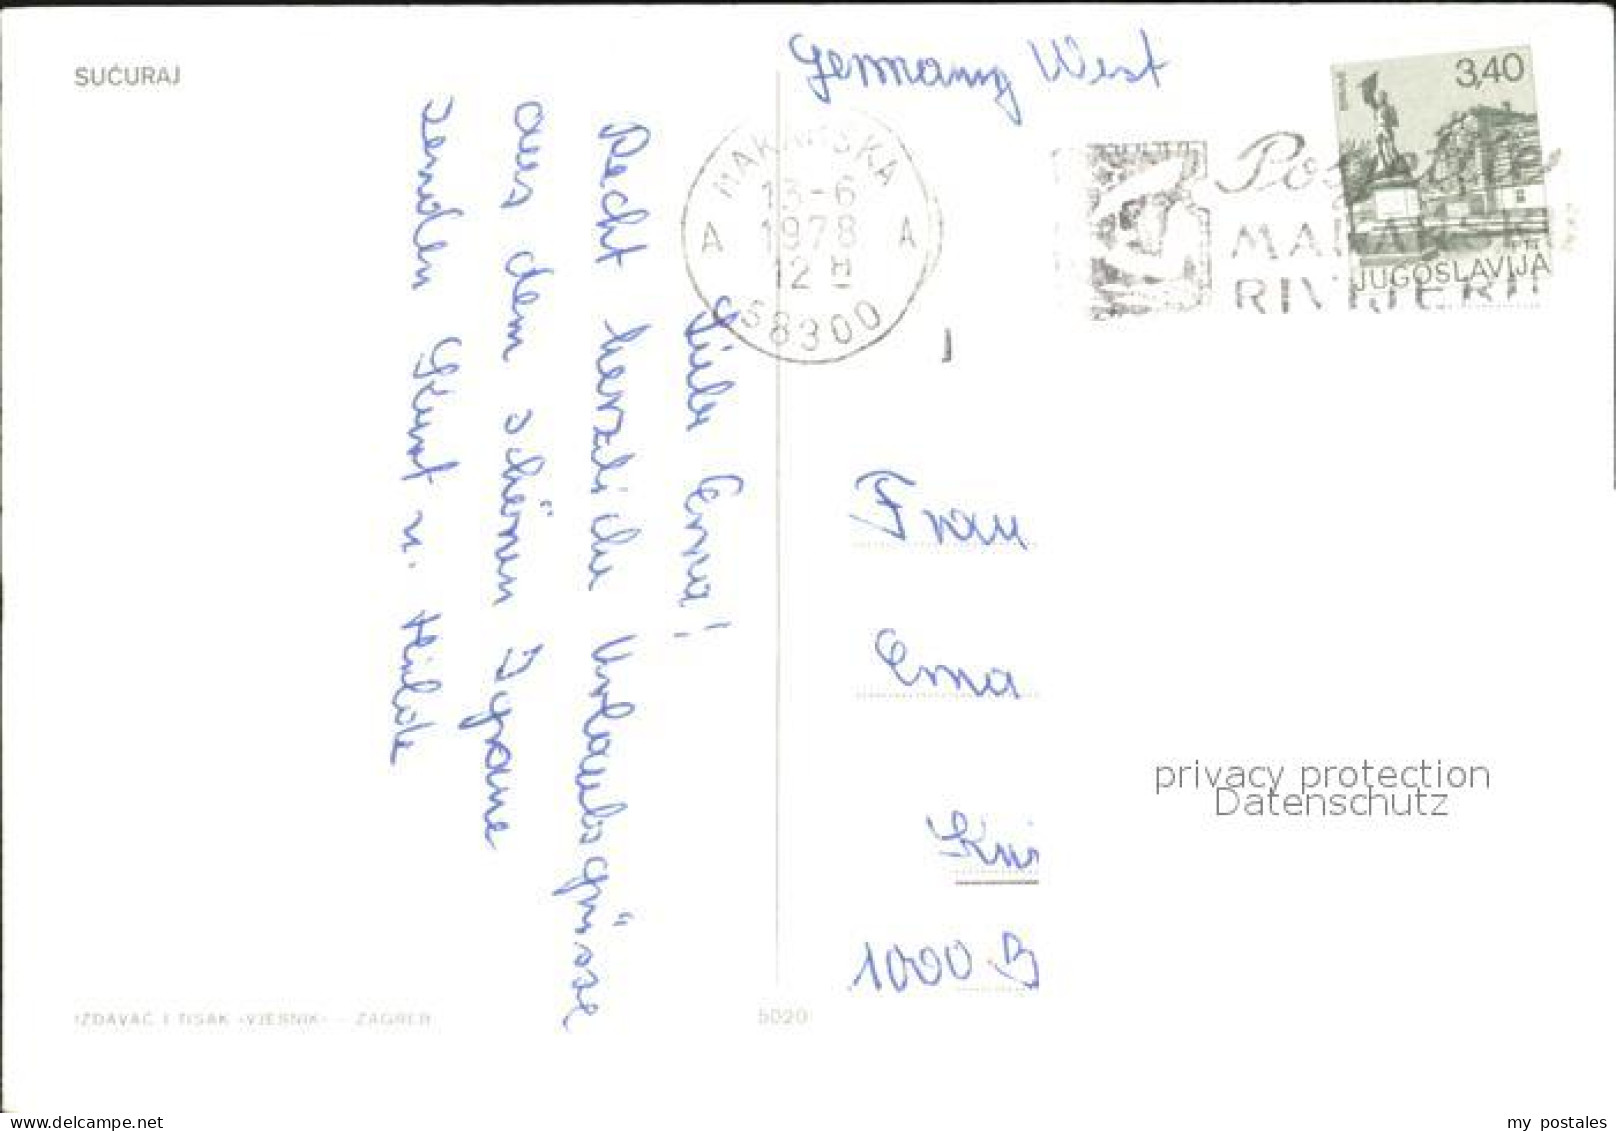 SUĆURAJ
Germany West
3,40
JUGOSLAVIJA
MAKARSKA
13-6
1978
12 H
A A
58300
MAKARSKU
RIVIJERU
Liebe Erna!
Recht herzliche Urlaubsgrüsse
aus dem schönen Igrane
senden Kurt u. Hilde
Frau
Erna
1000 B
privacy protection
Datenschutz
IZDAVAČ I TISAK «VJESNIK» - ZAGREB
5020
www.delcampe.net
my_postales